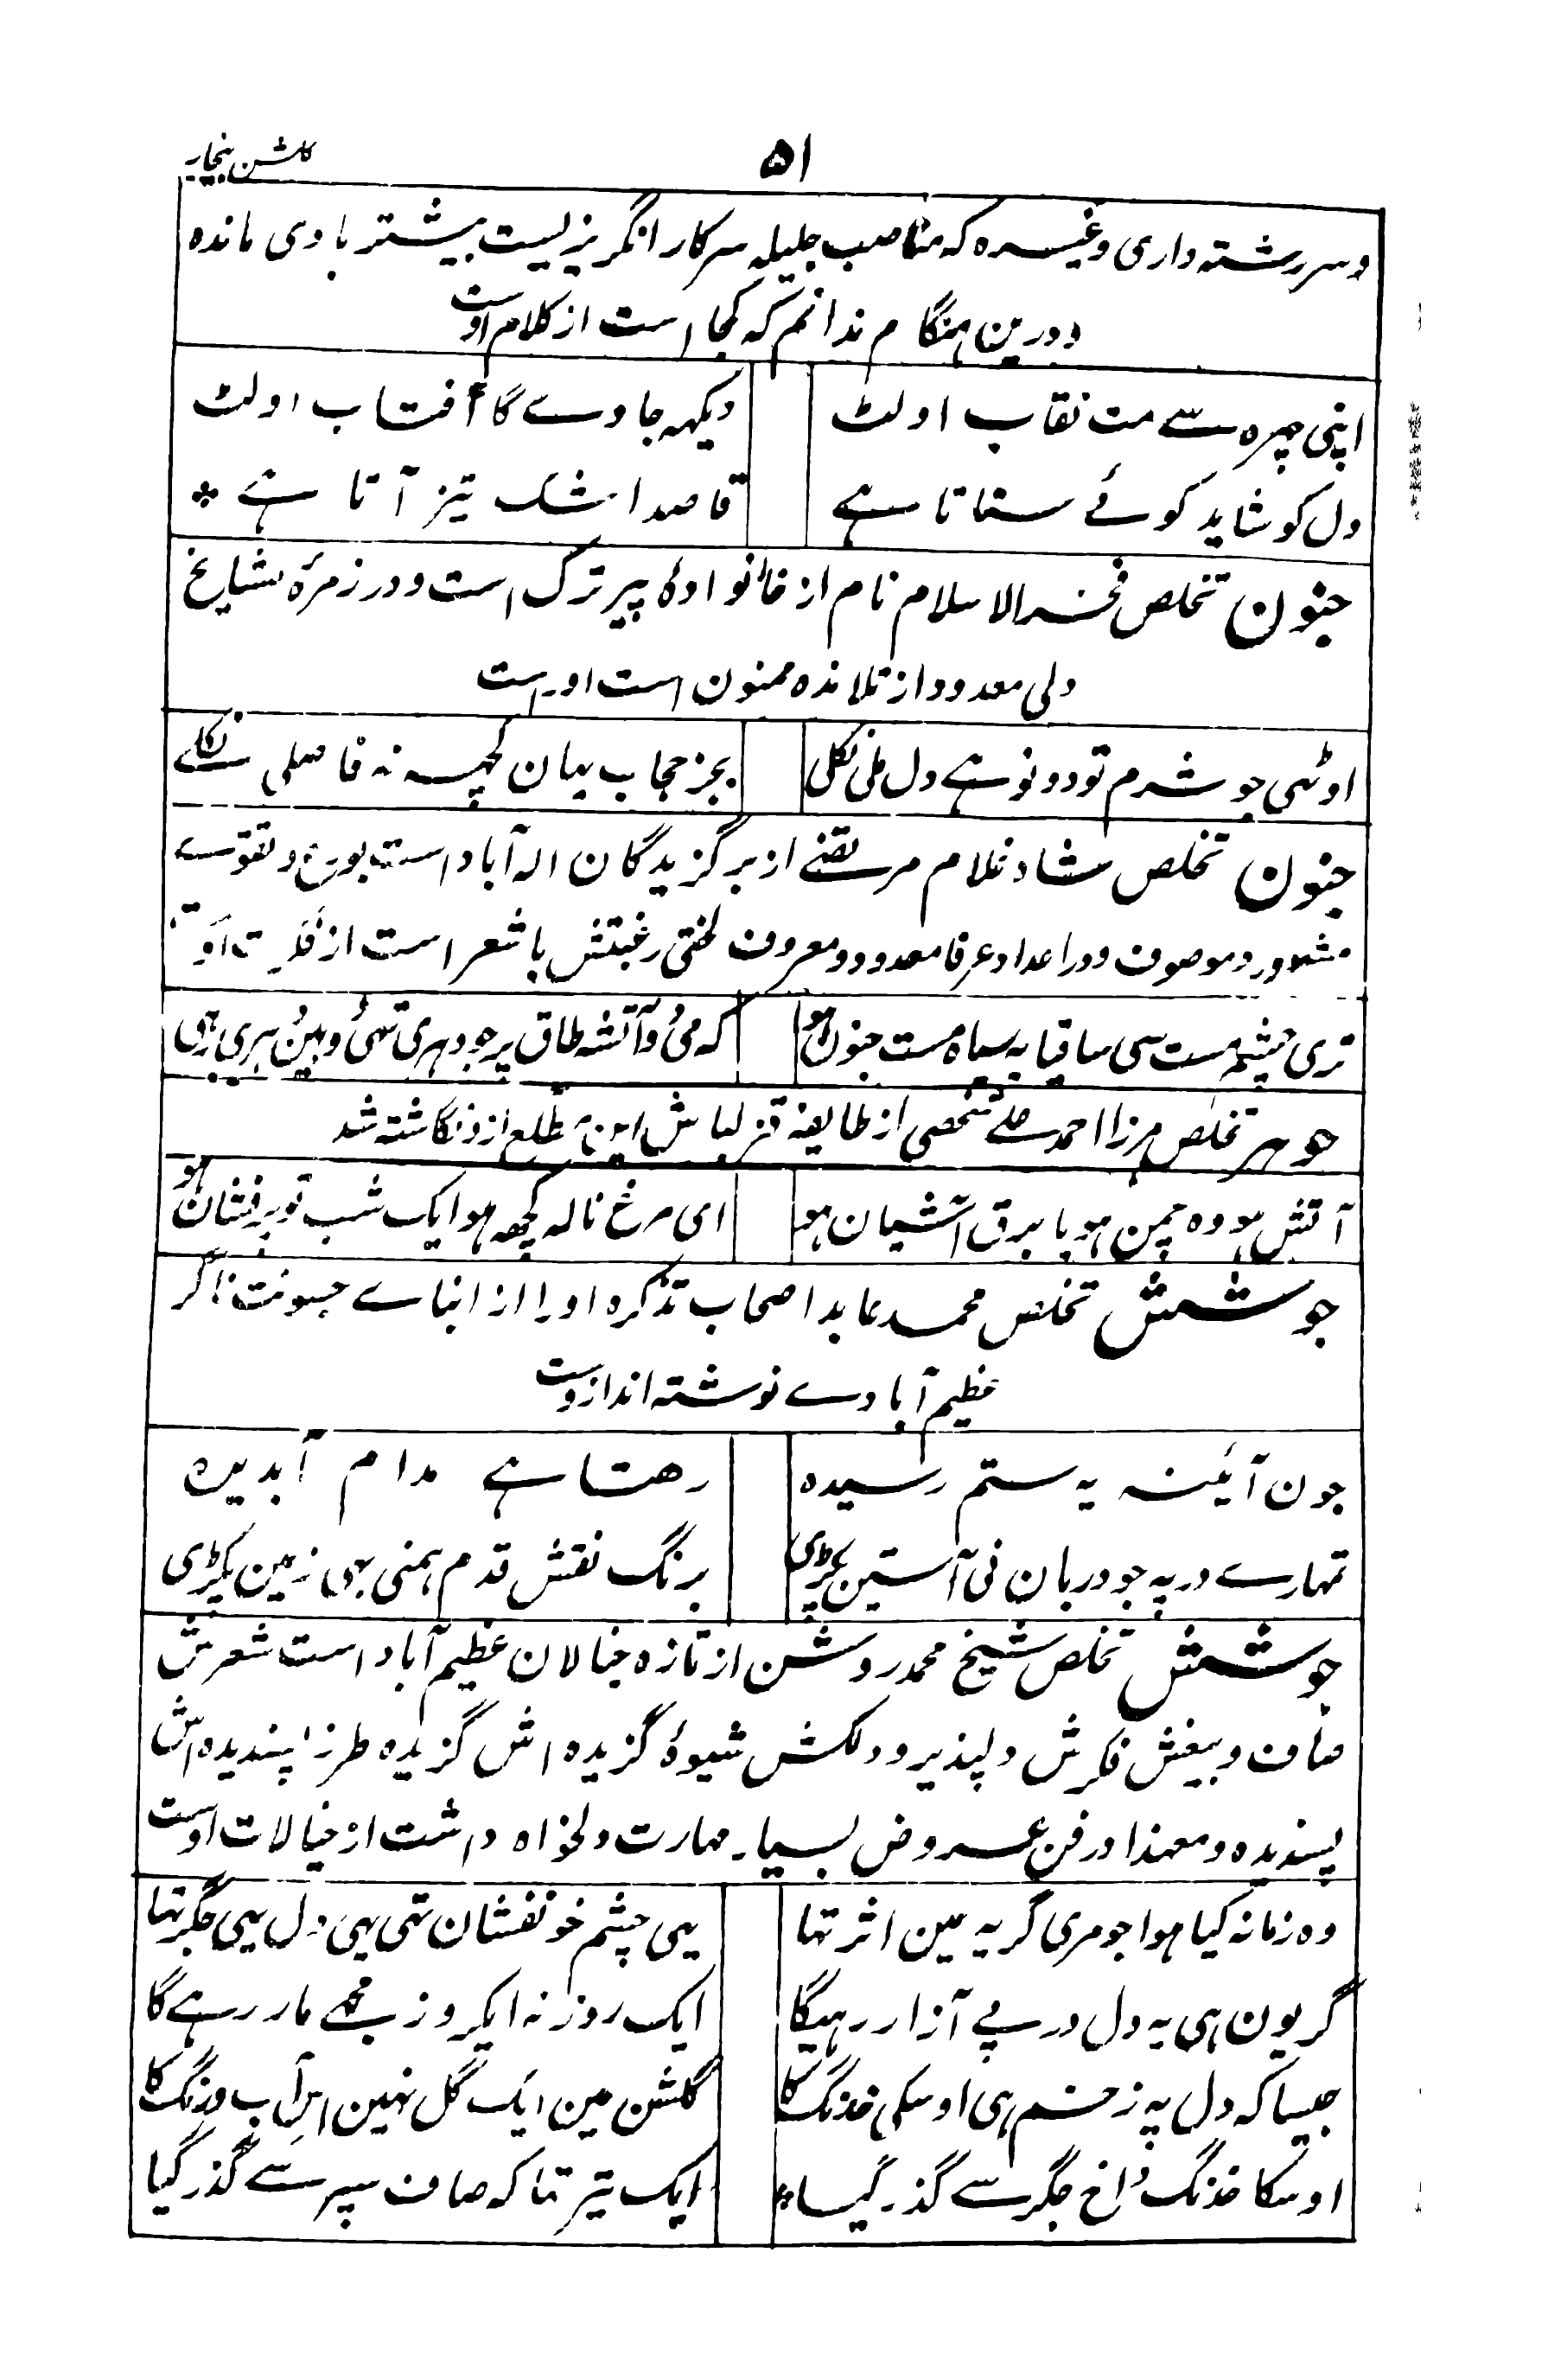 گلشن بیخار
۵۱
و سررشته داری وغیره که مناصب جلیله سرکار انگریزیست بیشتر با وی مانده
و درین هنگام ندانم که کجا است از کلام اوست
اپنی چہرہ سے مت نقاب اولٹ
دیکہہ جاوے گا آفتاب اولٹ
دل کو شاید کوئے ستاتا ہے
قاصد اشک تیز آتا ہے *
جنون تخلص فخر الاسلام نام از خانوادۂ پیر ترک است و در زمرۂ مشایخ
دلی معدود از تلامذه ممنون است اوراست
اوٹھی جو شرم تو دونو ہے دل ملی نکلی
بجز حجاب یہان کچہہ نہ فاصلی نکلے
جنون تخلص شاه غلام مرتضے از برگزیدگان اله آباد است بورع و تقوے
مشهور و موصوف و در اعداد عرفا معدود و معروف لختی رغبتش با شعر است از
تری چشم مست سی ساقیا یہ سیاہ مست جنون ہو
کہ می دو آتشہ طاق پر جو دہری تہی وہین ہری رہی
جوهر تخلص مرزا احمد علے شخصی از طایفه قزلباش این مطلع ازو نگاشته شد
آتش ہو وہ چمن ہو یا برق آشیان ہو
ای مرغ نالہ کچہہ ہو ایک شب تو پرفشان ہو
جوشش تخلص محمد عابد اصحاب تذکره او را از ابناے جسونت ناگر
عظیم آبادے نوشته اند ازوست
جون آئینہ یہ ستم رسیدہ
رہتا ہے مدام آبدیدہ
تمہارے در پہ جو دربان نی آستین پکڑی
برنگ نقش قدم ہمنی بہی زمین پکڑی
جوشش تخلص شیخ محمد روشن از تازه خیالان عظیم آباد است شعرش
صاف و بیغش فکرش دلپذیر و دلکش شیوۂ گزیده اش گزیده طرز پسندیده اش
پسندیده و معهذا در فن عروض بسیار مهارت دلخواه داشت از خیالات اوست
وہ زمانہ کیا ہوا جو مری گریہ مین اثر تہا
یہی چشم خونفشان تہی یہی دل یہی جگر تہا
گر یون ہی یہ دل درپے آزار رہیگا
ایک روز نہ ایکروز مجھے مار رہے گا
جیسا کہ دل پہ زخم ہی اوسکی خدنگ کا
گلشن مین ایک گل نہین اس آب و رنگ کا
اوسکا خدنگ داغ جگر سے گذر گیا *
ایک تیر تہا کہ صاف سپر سے گذر گیا